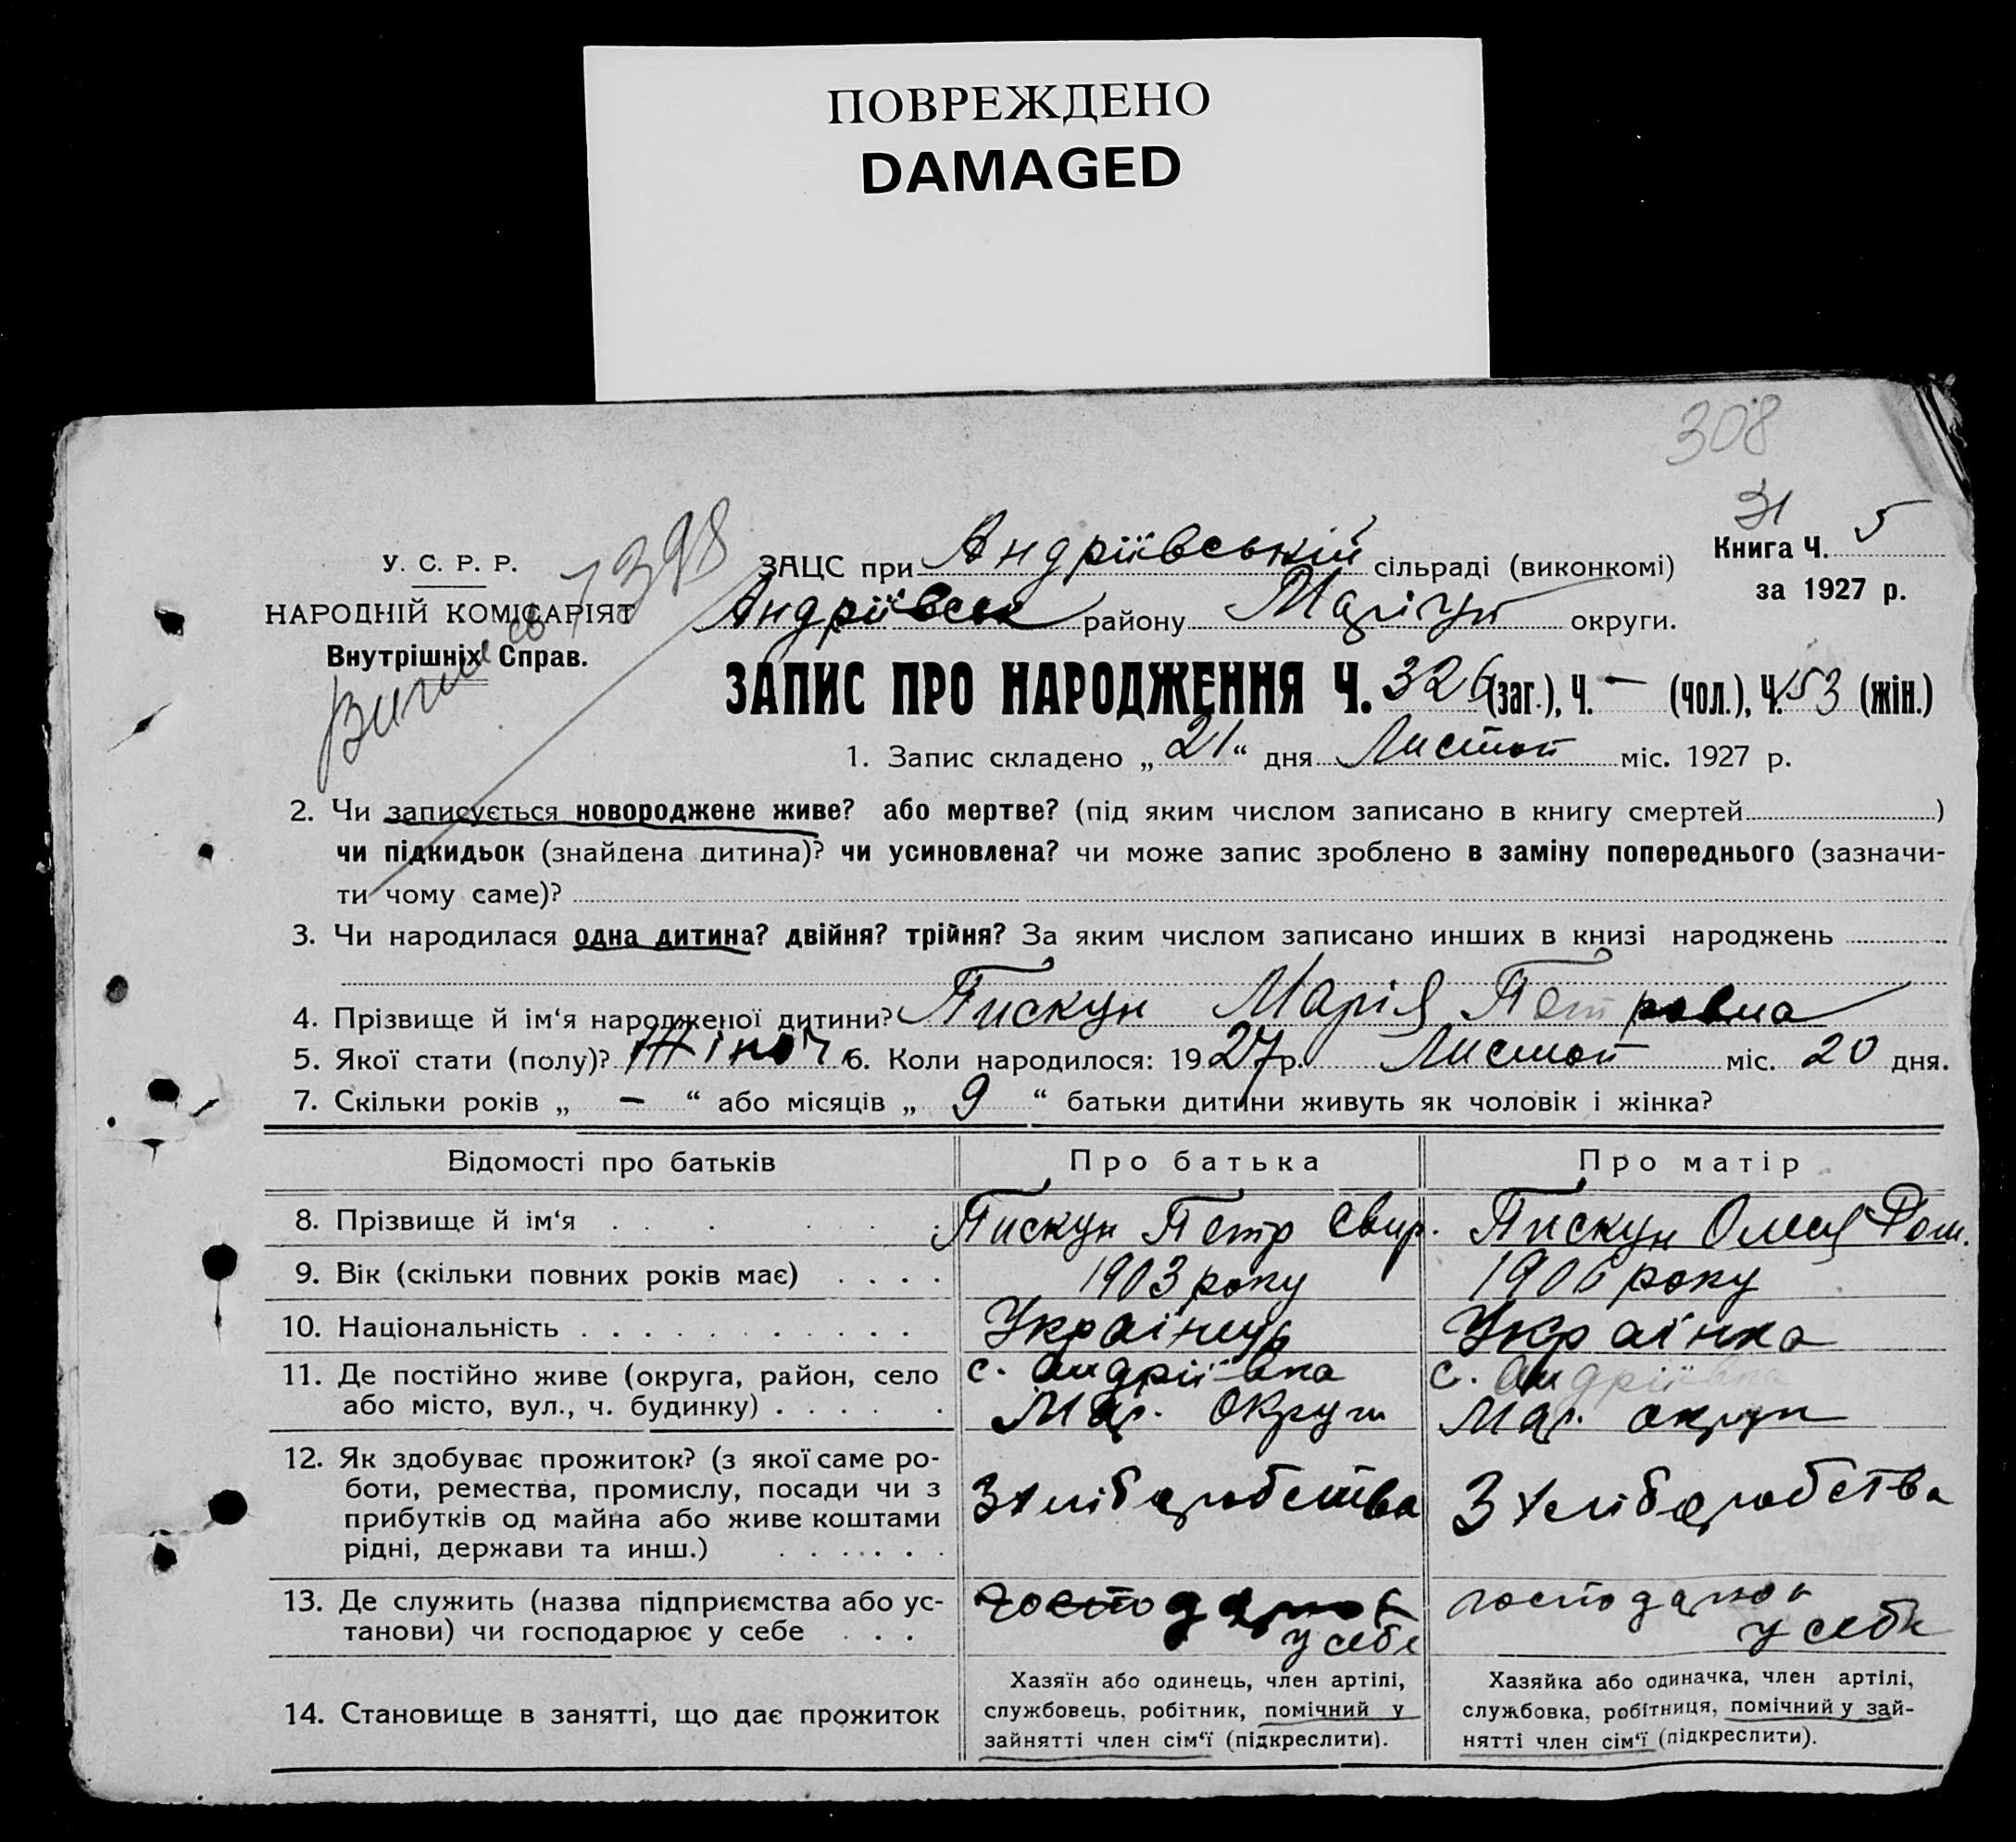 ПОВРЕЖДЕНО
DAMAGED
308
31
У. С. Р. Р.
НАРОДНІЙ КОМІСАРІЯТ
Внутрішніх Справ.
7398
ЗАЦС при Андріївській сільраді (виконкомі)
Книга Ч. 5
за 1927 р.
Андріївськ району Маріуп округи.
ЗАПИС ПРО НАРОДЖЕННЯ Ч. 326 (заг.), Ч. — (чол.), Ч. 153 (жін.)
1. Запис складено „ 21 “ дня Листоп міс. 1927 р.
2. Чи записується новороджене живе? або мертве? (під яким числом записано в книгу смертей )
чи підкидьок (знайдена дитина)? чи усиновлена? чи може запис зроблено в заміну попереднього (зазначи-
ти чому саме)?
3. Чи народилася одна дитина? двійня? трійня? За яким числом записано инших в книзі народжень
4. Прізвище й ім‘я народженої дитини? Пискун Марія Петровна
5. Якої стати (полу)? Жіноч. 6. Коли народилося: 1927 р. Листоп міс. 20 дня.
7. Скільки років „ — “ або місяців „ 9 “ батьки дитини живуть як чоловік і жінка?
Відомості про батьків Про батька Про матір
8. Прізвище й ім‘я Пискун Петр Свир. Пискун Олія Фом.
9. Вік (скільки повних років має) 1903 року 1906 року
10. Національність Українць Українка
11. Де постійно живе (округа, район, село
або місто, вул., ч. будинку)
с. Андріївка
Мар. Округи
с. Андріївка
Мар. округи
12. Як здобуває прожиток? (з якої саме ро-
боти, ремества, промислу, посади чи з
прибутків од майна або живе коштами
рідні, держави та инш.)
З хліборобства
З хліборобства
13. Де служить (назва підприємства або ус-
танови) чи господарює у себе
господарює
у себе
господарює
у себе
14. Становище в занятті, що дає прожиток
Хазяїн або одинець, член артілі,
службовець, робітник, помічний у
зайнятті член сім‘ї (підкреслити).
Хазяйка або одиначка, член артілі,
службовка, робітниця, помічний у зай-
нятті член сім‘ї (підкреслити).